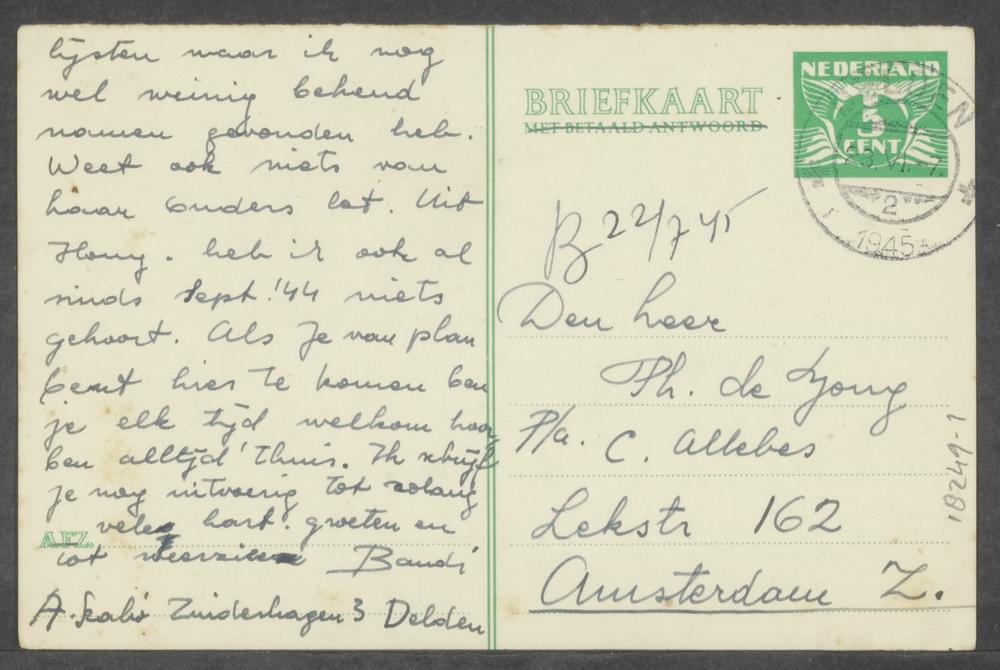 lijsten waar ik nog
wel weinig bekend
namen gevonden heb.
Weet ook niets van
haar ouders lot. Uit
Hong. heb ik ook al
sinds Sept. '44 niets
gehoort. Als Je van plan
bent hier te komen ben
je elk tijd welkom hoor
ben alltijd thuis. Ik schrijf
je nog uitvoerig tot zolang
veleg hart. groeten en
tot weerziens Bandi
AFZ.
A. Szabó Zuiderhagen 3 Delden
BRIEFKAART
MET BETAALD ANTWOORD
NEDERLAND
5
CENT
2
1945
B 22/7 45
Den heer
Ph. de Jong
P/a. C. Allebes
Lekstr 162
Amsterdam Z.
18249-1